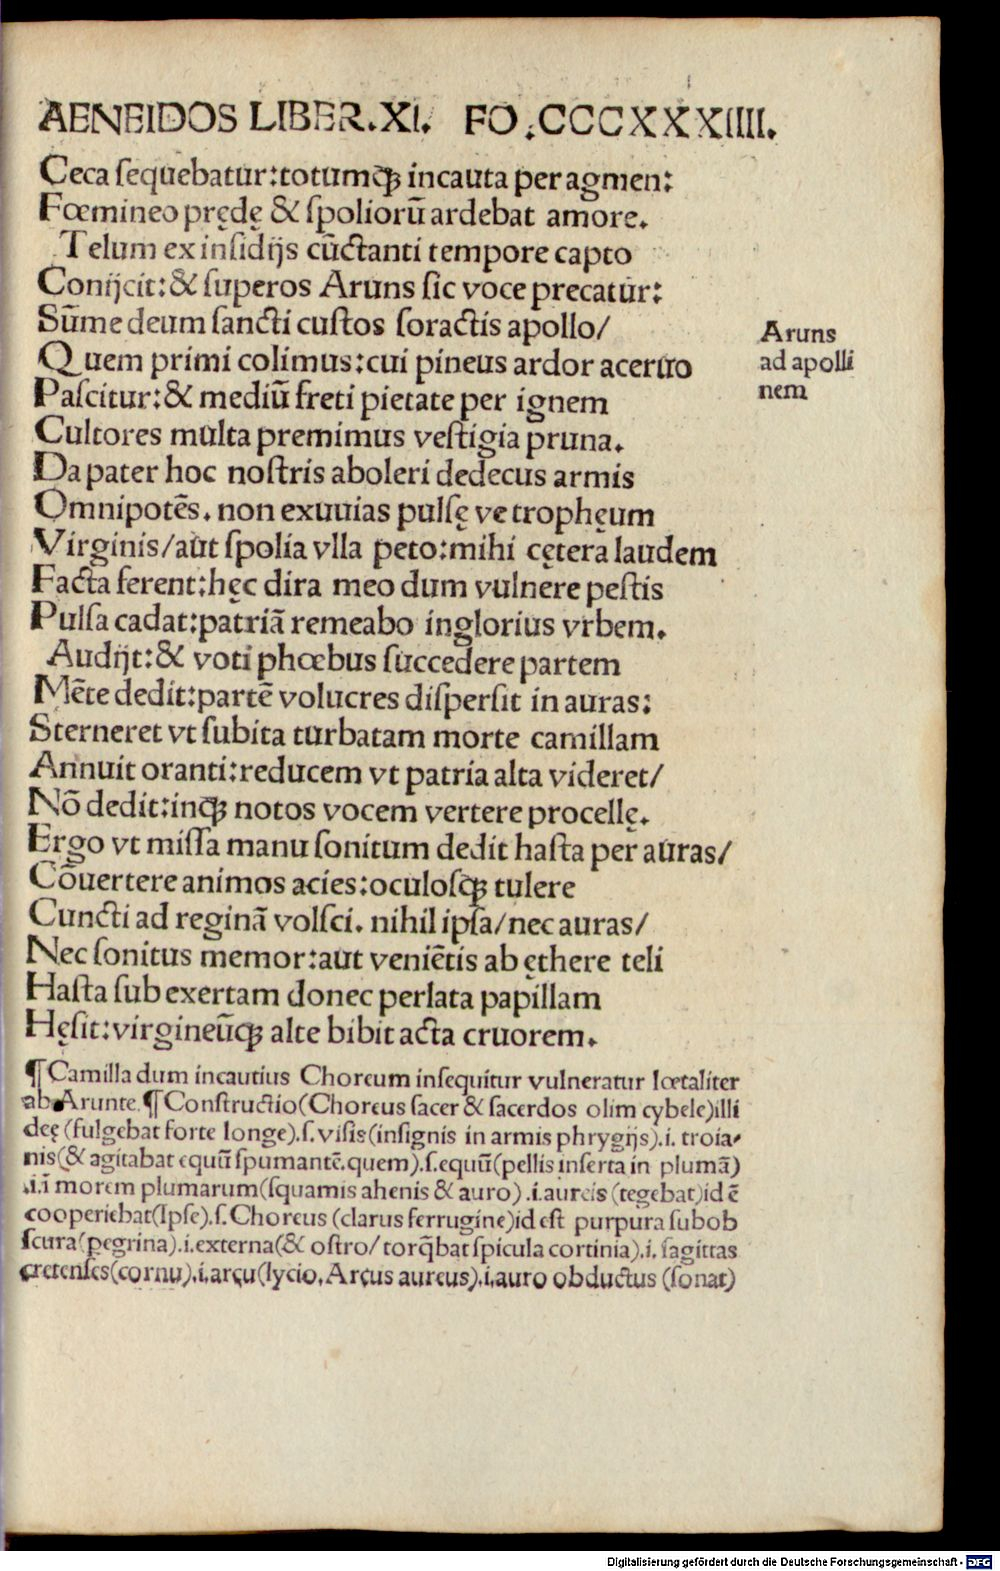 AENEIDOS LIBER.XI. FO.CCCXXXIIII.
Ceca ſequebatur:totumqꝫ incauta per agmen:
Fœmineo prędę & ſpoliorū ardebat amore.
Telum ex inſidijs cūctanti tempore capto
Conijcit:& ſuperos Aruns ſic voce precatur:
Sūme deum ſancti cuſtos ſoractis apollo/
Quem primi colimus:cui pineus ardor aceruo
Paſcitur:& mediū freti pietate per ignem
Cultores multa premimus veſtigia pruna.
Da pater hoc noſtris aboleri dedecus armis
Omnipotēs. non exuuias pulſę ve trophęum
Virginis/aut ſpolia vlla peto:mihi cętera laudem
Facta ferent:hęc dira meo dum vulnere peſtis
Pulſa cadat:patriā remeabo inglorius vrbem.
Audijt:& voti phœbus ſuccedere partem
Mēte dedit:partē volucres diſperſit in auras:
Sterneret vt ſubita turbatam morte camillam
Annuit oranti:reducem vt patria alta videret/
Nō dedit:inqꝫ notos vocem vertere procellę.
Ergo vt miſſa manu ſonitum dedit haſta per auras/
Cōuertere animos acies:oculoſqꝫ tulere
Cuncti ad reginā volſci. nihil ipſa/nec auras/
Nec ſonitus memor:aut veniētis ab ęthere teli
Haſta ſub exertam donec perlata papillam
Hęſit:virgineūqꝫ alte bibit acta cruorem.
Aruns
ad apolli
nem
¶Camilla dum incautius Choreum inſequitur vulneratur lœtaliter
ab Arunte.¶Conſtructio(Choreus ſacer & ſacerdos olim cybele)illi
deę(fulgebat forte longe).ſ.viſis(inſignis in armis phrygijs).i. troia-
nis(& agitabat equū ſpumantē.quem).ſ.equū(pellis inſerta in plumā)
.i.ī morem plumarum(ſquamis ahenis & auro).i.aureis (tegebat)id ē
cooperiebat(Ipſe).ſ.Choreus (clarus ferrugine)id eſt purpura ſubob
ſcura(pegrina).i.externa(& oſtro/ torq̄bat ſpicula cortinia).i. ſagittas
cretenſes(cornu).i.arcu(lycio.Arcus aureus).i.auro obductus (ſonat)
Digitalisierung gefördert durch die Deutsche Forschungsgemeinschaft - DFG